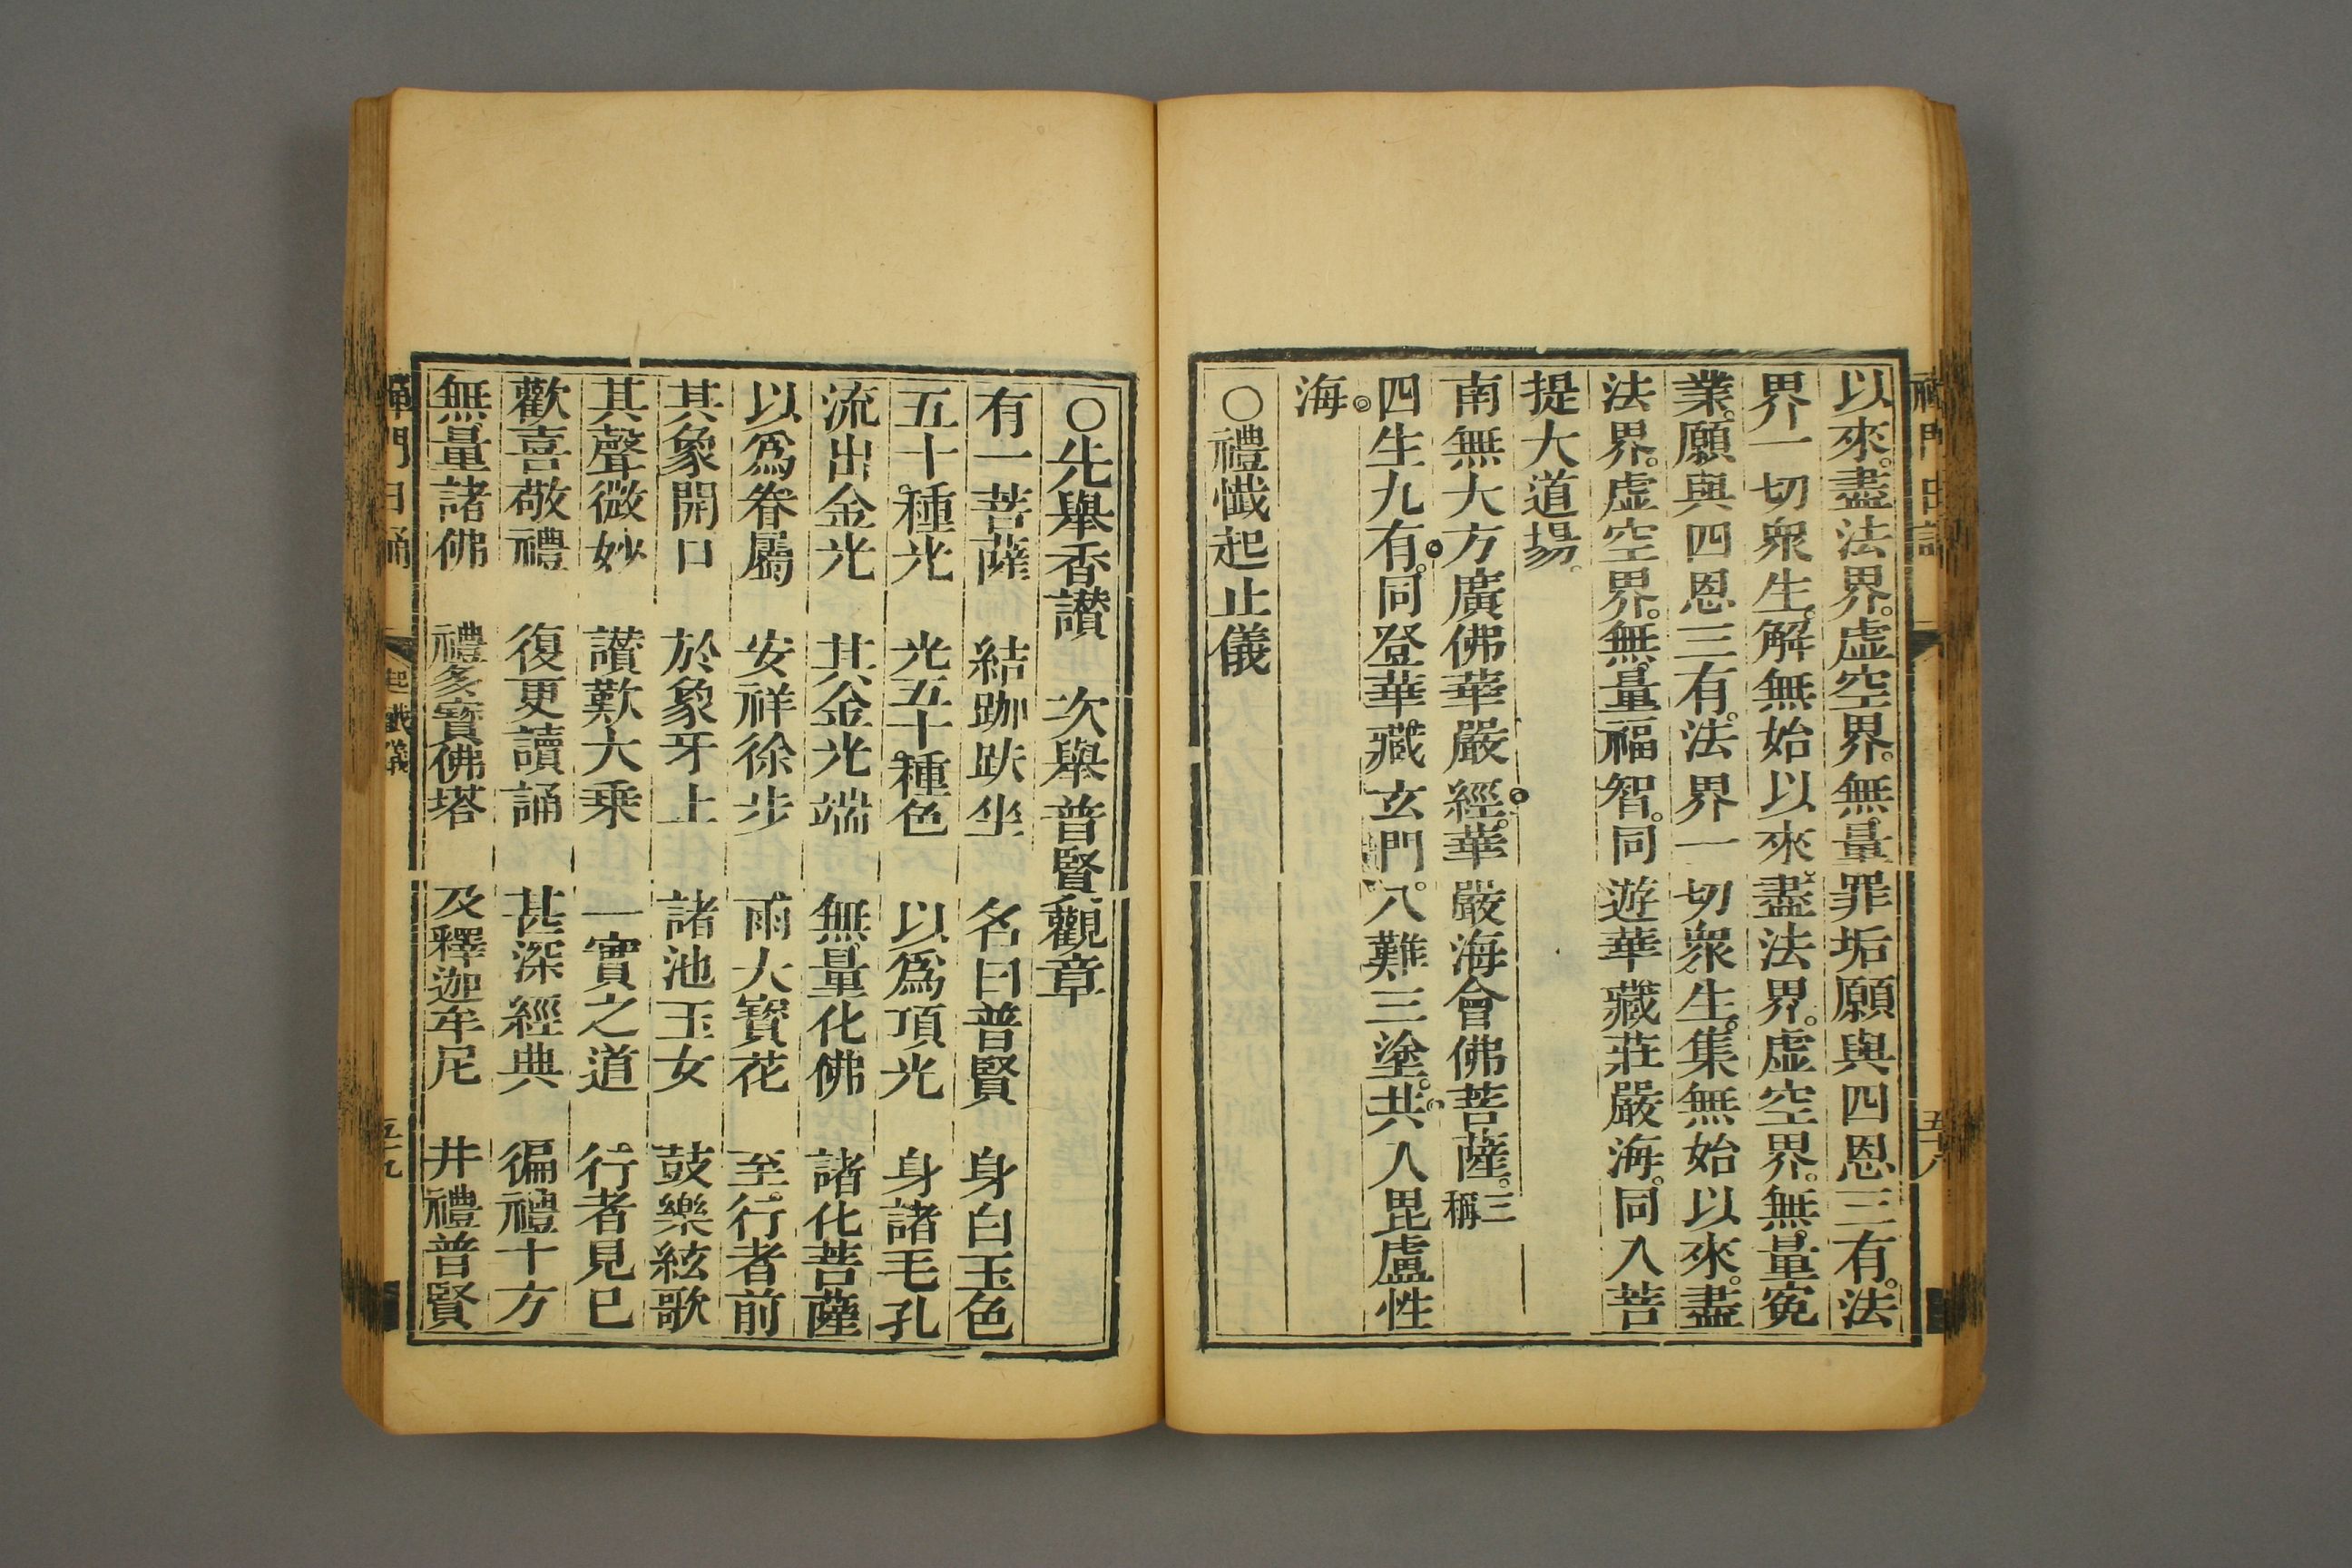 以來。盡法界。虛空界。無量罪垢願與四恩三有。法
界一切衆生。解無始以來盡法界。虛空界。無量寃
業。願與四恩三有。法界一切衆生。集無始以來。盡
法界。虛空界。無量福智。同遊華藏莊嚴海。同入菩
提大道場。
南無大方廣佛華嚴經。華嚴海會佛菩薩。三稱
四生九有。同登華藏玄門。八難三塗。共入毘盧性
海。
○禮懺起止儀
○先舉香讚 次舉普賢觀章
有一菩薩 結跏趺坐 名曰普賢 身白玉色
五十種光 光五十種色 以爲項光 身諸毛孔
流出金光 其金光端 無量化佛 諸化菩薩
以爲眷屬 安祥徐步 雨大寶花 至行者前
其象開口 於象牙上 諸池玉女 鼓樂絃歌
其聲微妙 讚歎大乘 一實之道 行者見已
歡喜敬禮 復更讀誦 甚深經典 徧禮十方
無量諸佛 禮多寶佛塔 及釋迦牟尼 并禮普賢
禪門日誦 起止儀 五十九